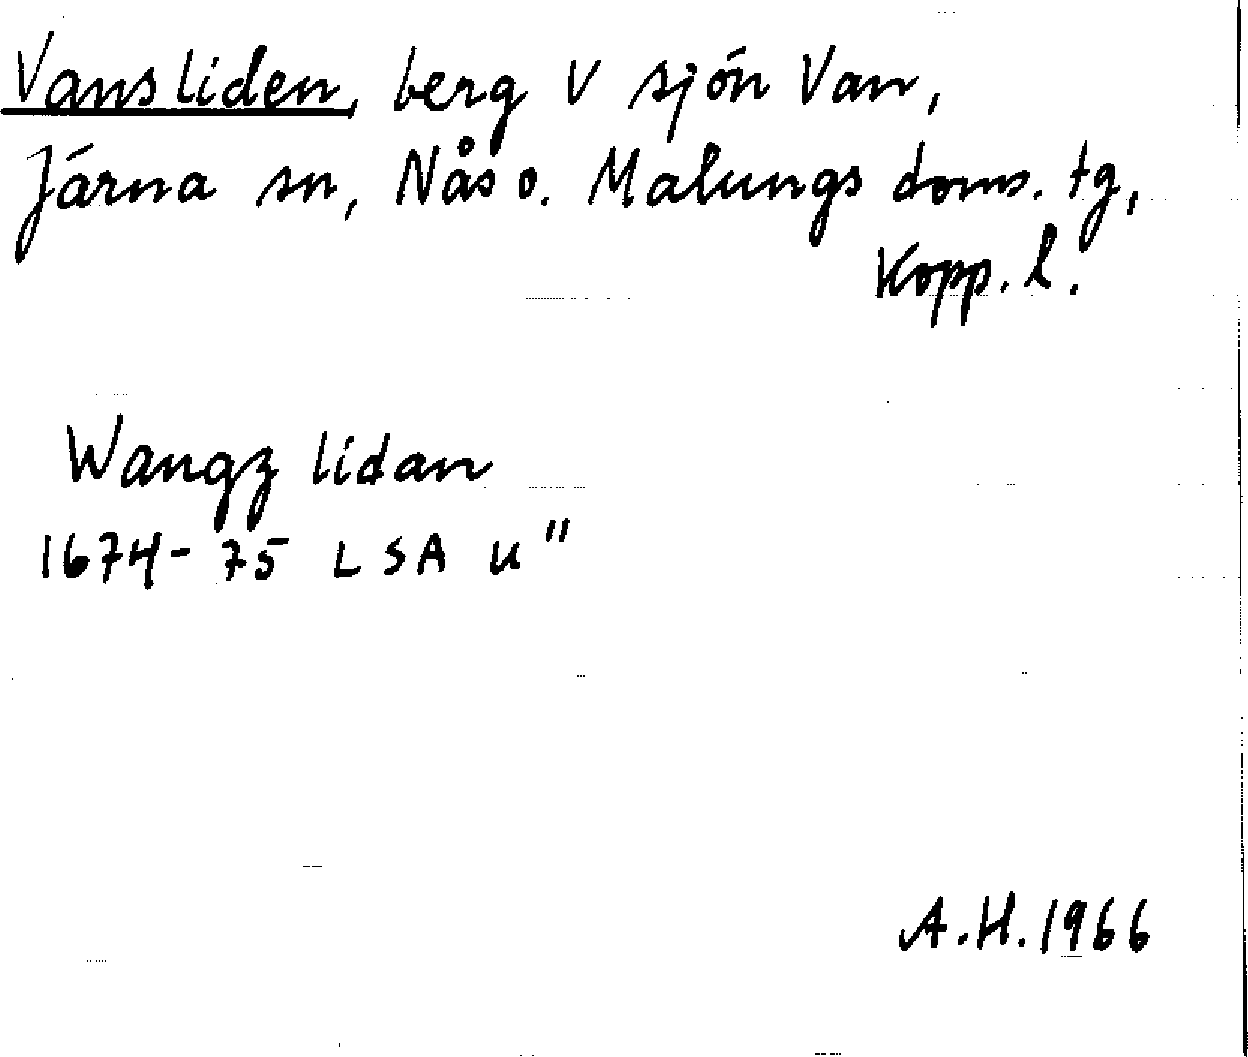 Vansliden, berg V sjön Van,
Järna sn, Nås o. Malungs doms. tg,
Kopp. l.
Wangz lidan
1674-75 LSA u"
A.H. 1966